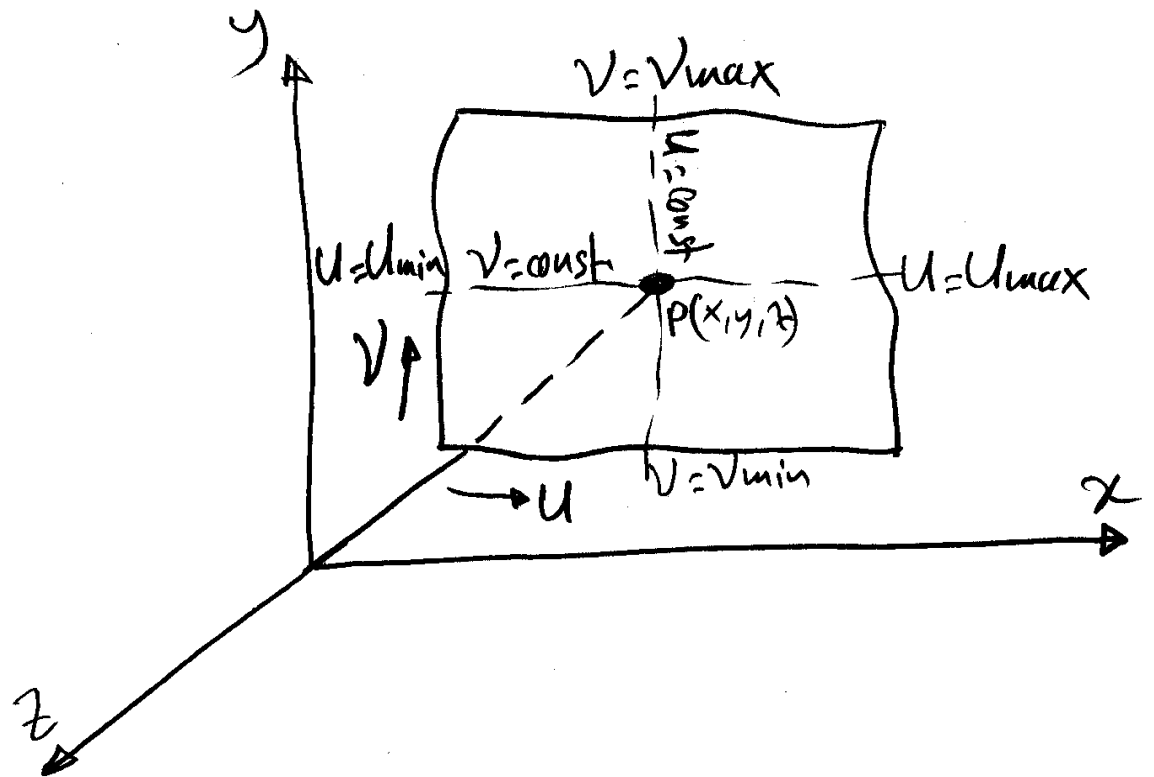 y
V=Vmax
U=const
U=Umin
V=const
U=Umax
P(x,y,z)
V
V=Vmin
U
x
z